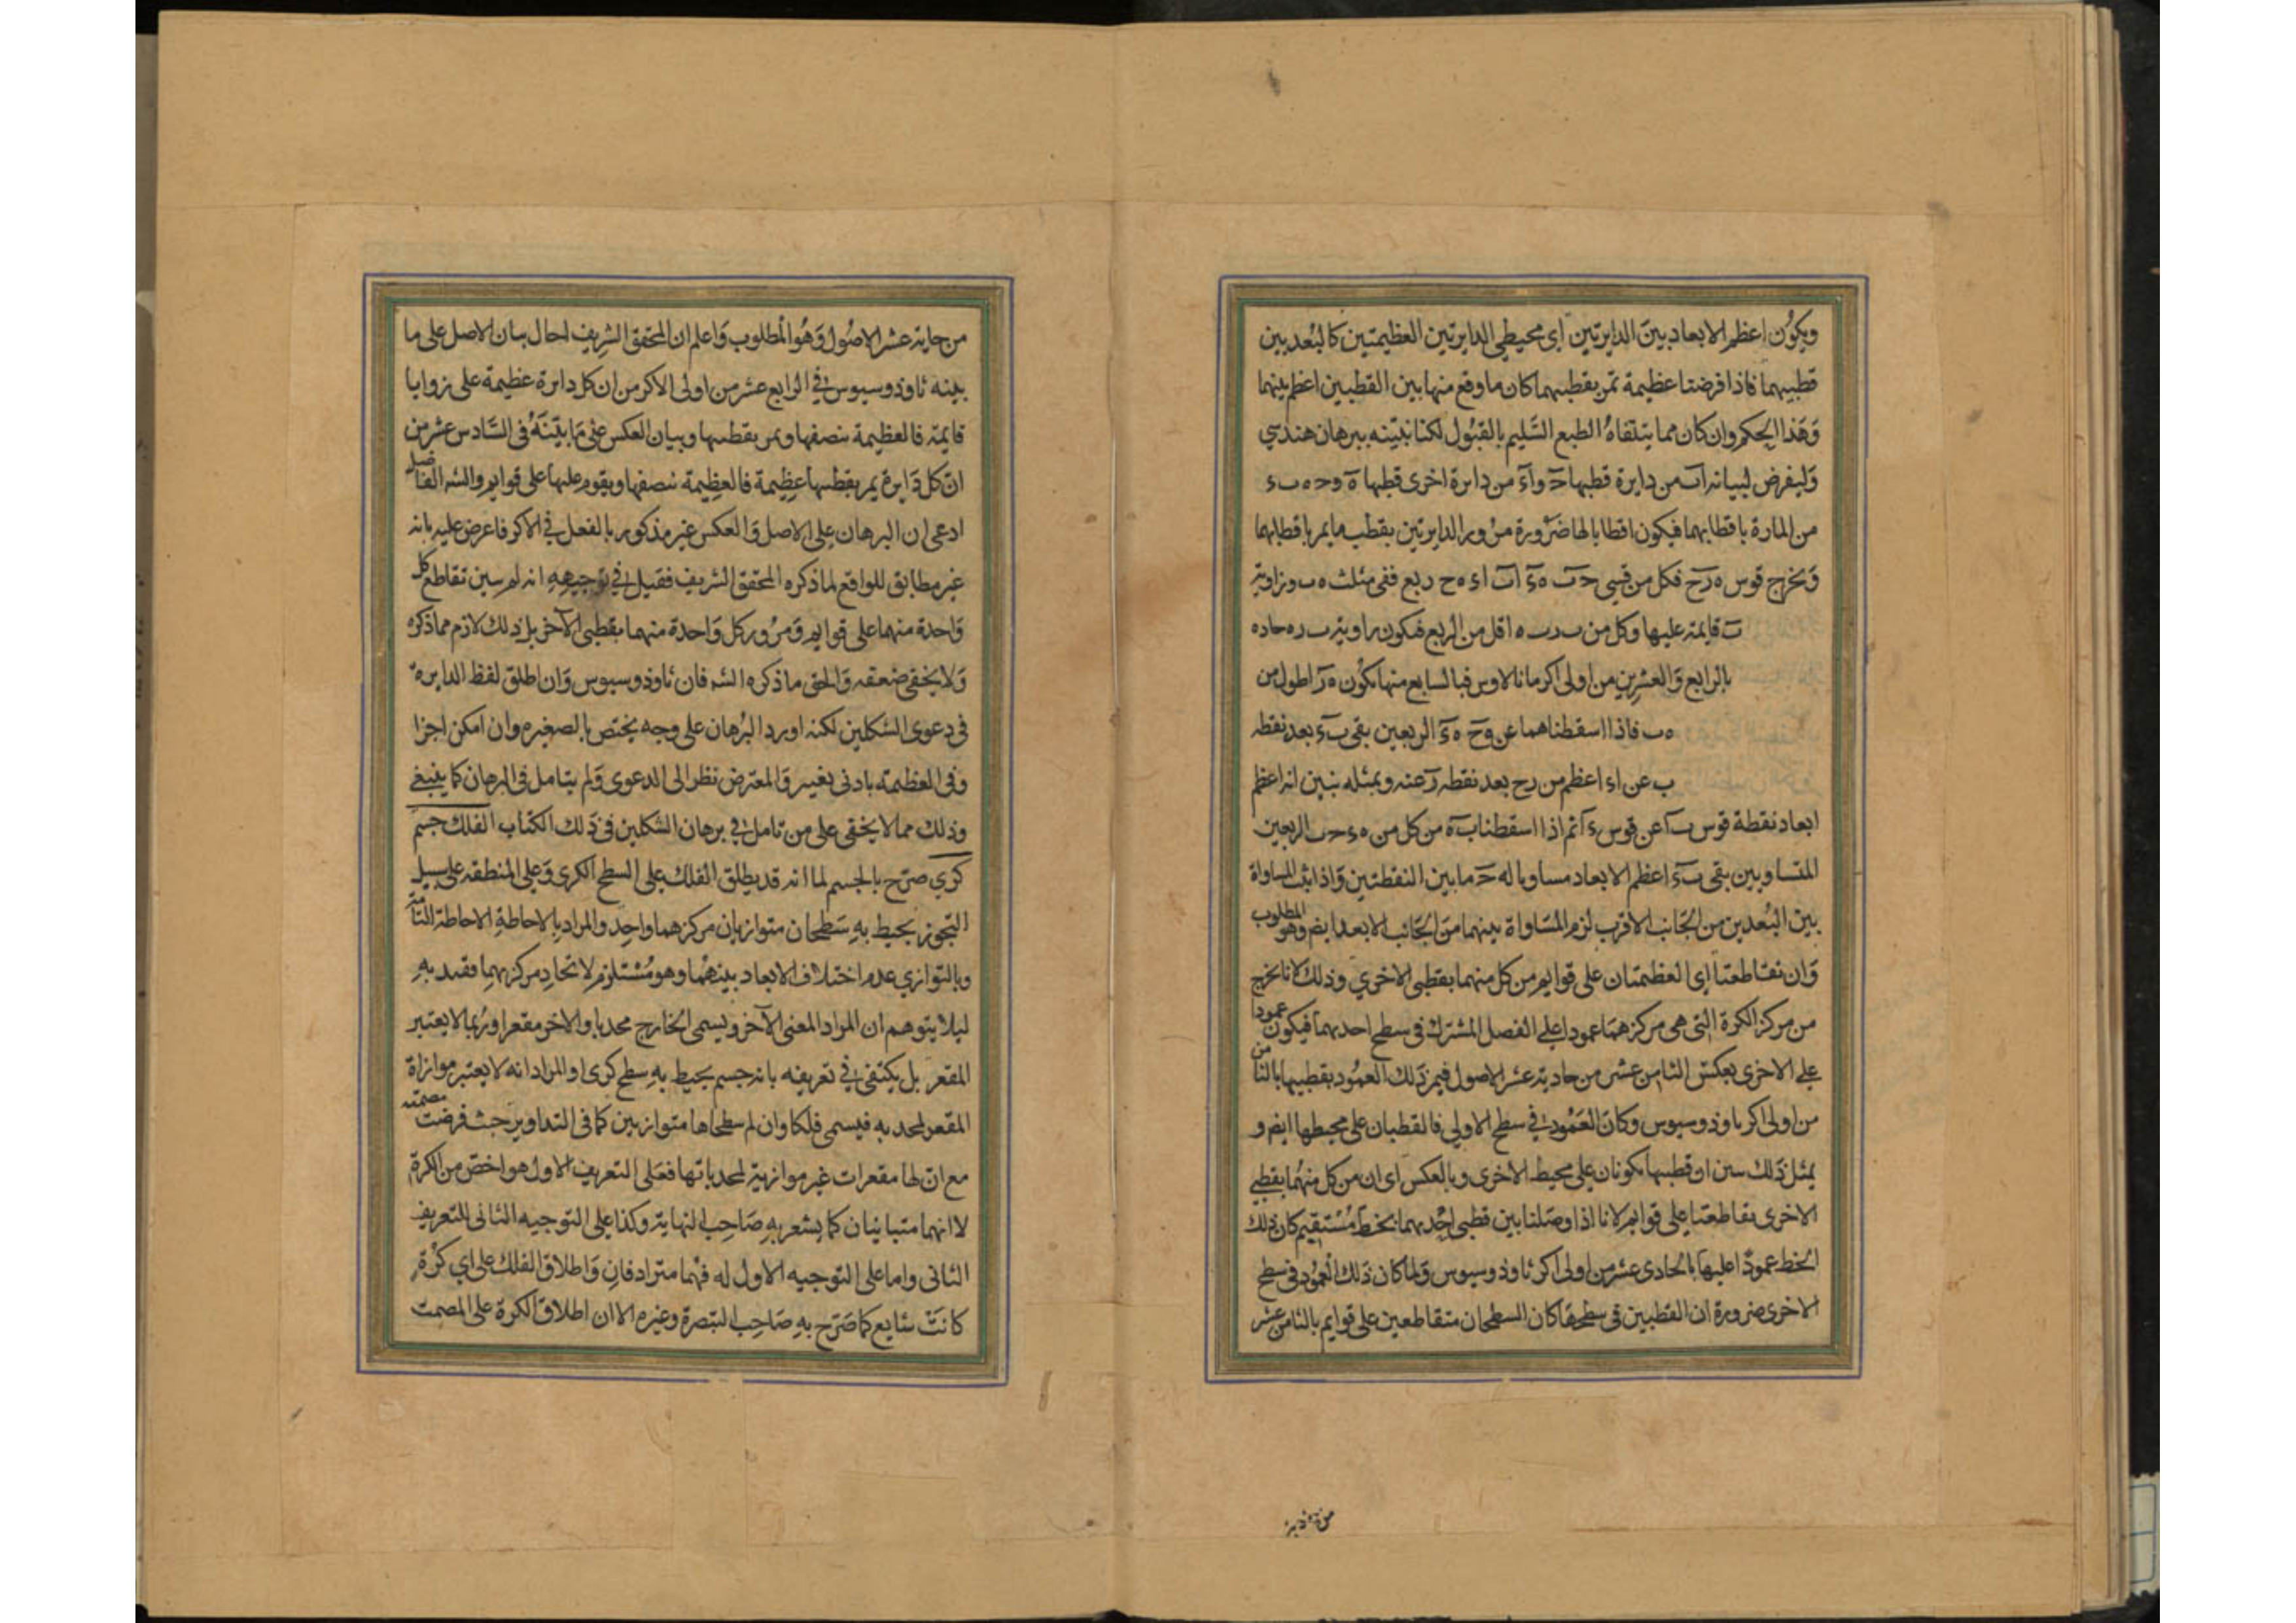 ويكون اعظم الابعاد بين الدايرتين اى محيطى الدايرتين العظيمتين كالبعد بين
قطبيهما فاذا فرضنا عظيمة تمر بقطبيهما كان ما وقع منها بين القطبين اعظم بينهما
وهذا الحكم وان كان مما يتلقاه الطبع السليم بالقبول لكنا نبينه ببرهان هندسي
وليفرض لبيانه اب من دايرة قطبها ح و اء من دايرة اخرى قطبها ه و ح ه ب ء
من المارة باقطابهما فيكون اقطابا لها ضرورة مرور الدايرتين بقطب ما يمر باقطابهما
ونخرج قوس ه ر ح فكل من قسى ح ب ه ء اب اء ه ح ربع ففى مثلث ه ب ر زاوية
ب قايمة عليها وكل من ب ر ب ه اقل من الربع فيكون زاوية ب ر ه حادة
بالرابع والعشرين من اولى اكر مانالاوس فبالسابع منها يكون ه ر اطول من
ه ب فاذا اسقطناهما عن ه ح ه ء الربعين بقى ب ء بعد نقطه
ب عن اء اعظم من ر ح بعد نقطه ر عنه وبمثله نبين انه اعظم
ابعاد نقطة قوس ب ا عن قوس ء ا ثم اذا اسقطنا ب ه من كل من ه ء ح ب الربعين
المتساويين بقى ب ء اعظم الابعاد مساويا له ح ما بين النقطتين واذا ثبت المساواة
بين البعدين من الجانب الاقرب لزم المساواة بينهما من الجانب الابعد ايضا وهو المطلوب
وان تقاطعتا اى العظيمتان على قوايم مر كل منهما بقطبى الاخرى وذلك لانا نخرج
من مركز الكرة التى هى مركزهما عمودا على الفصل المشترك فى سطح احديهما فيكون عمودا
على الاخرى بعكس الثامن عشر من حادية عشر الاصول فيمر ذلك العمود بقطبيها بالثامن
من اولى اكر ثاوذوسيوس وكان العمود فى سطح الاولى فالقطبان على محيطها ايضا و
بمثل ذلك نبين ان قطبيها يكونان على محيط الاخرى وبالعكس اى ان مر كل منهما بقطبى
الاخرى تقاطعتا على قوايم لانا اذا وصلنا بين قطبى احديهما بخط مستقيم كان ذلك
الخط عمودا عليها بالحادى عشر من اولى اكر ثاوذوسيوس ولما كان ذلك العمود فى سطح
الاخرى ضرورة ان القطبين فى سطحها كان السطحان متقاطعين على قوايم بالثامن عشر
من حادية
من حادية عشر الاصول وهو المطلوب واعلم ان المحقق الشريف احال بيان الاصل على ما
بينه ثاوذوسيوس فى الرابع عشر من اولى الاكر من ان كل دايرة عظيمة على زوايا
قايمة فالعظيمة تنصفها وتمر بقطبيها وبيان العكس على ما بينه فى السادس عشر من
ان كل دايرة يمر بقطبيها عظيمة فالعظيمة تنصفها ويقوم عليها على قوايم والشه الفاضل
ادعى ان البرهان على الاصل والعكس غير مذكور بالفعل فى الاكر فاعرض عليه بانه
غير مطابق للواقع لما ذكره المحقق الشريف فقيل فى توجيهه انه لم يبين تقاطع كل
واحدة منهما على قوايم ومرور كل واحدة منهما بقطبى الآخر بل ذلك لازم مما ذكره
ولا يخفى ضعفه والحق ما ذكره الشه فان ثاوذوسيوس وان اطلق لفظ الدايرة
فى دعوى الشكلين لكنه اورد البرهان على وجه يختص بالصغيره وان امكن اجزا
وفى العظيمة بادنى تغيير والمعترض نظر الى الدعوى ولم يتامل فى البرهان كما ينبغى
وذلك مما لا يخفى على من تامل فى برهان الشكلين فى ذلك الكتاب الفلك جسم
كرى صرح بالجسم لما انه قد يطلق الفلك على السطح الكرى وعلى المنطقه على سبيل
التجوز يحيط به سطحان متوازيان مركزهما واحد والمراد بالاحاطة الاحاطة التامة
وبالتوازي عدم اختلاف الابعاد بينهما وهو مستلزم لاتحاد مركزيهما فقيد به
ليلا يتوهم ان المراد المعنى الآخر ويسمى الخارج محدبا والاخر مقعرا وربما لا يعتبر
المقعر بل يكتفى فى تعريفه بانه جسم يحيط به سطح كرى او المراد انه لا يعتبر موازاة
المقعر لمحدبه فيسمى فلكا وان لم سطحاها متوازيين كما فى التداوير حيث فرضت مصمته
مع ان لها مقعرات غير موازية لمحدباتها فعلى التعريف الاول هو اخص من الكرة
لا انهما متباينان كما يشعر به صاحب النهاية وكذا على التوجيه الثانى للتعريف
الثانى واما على التوجيه الاول له فهما مترادفان واطلاق الفلك على اى كرة
كانت شايع كما صرح به صاحب التبصرة وغيره الا ان اطلاق الكرة على المصمت